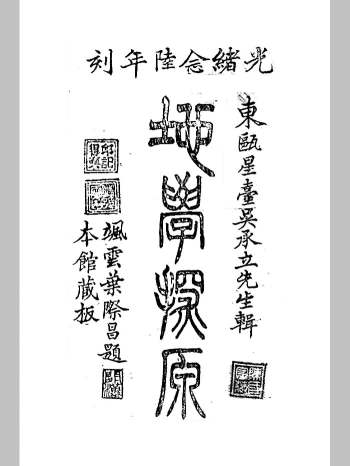 光緒念陸年刻
東甌星臺吳承立先生輯
地學探原
颯雲葉際昌題
本館藏板